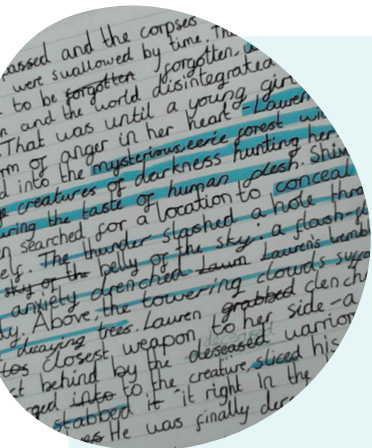 passed and the corpses
were swallowed by time. Th
to be forgotten forgotten.
n and the world disintegrated
. That was until a young girl
rm of anger in her heart - Lauren
d into the mysterious, eerie forest wi
creatures of darkness hunting her
uring the taste of human flesh. Shin
n searched for a location to conceal
elf. The thunder slashed a hole thro
sky of the belly of the sky: a flash-fl
anxiety drenched Lauren Laurens trembl
ty. Above, the towering clouds suffo
decaying trees. Lauren grabbed clench
closest weapon to her side - a
t behind by the deseased warrior
deceased
ged into to the creature, sliced his
stabbed it it right in the
He was finally dece